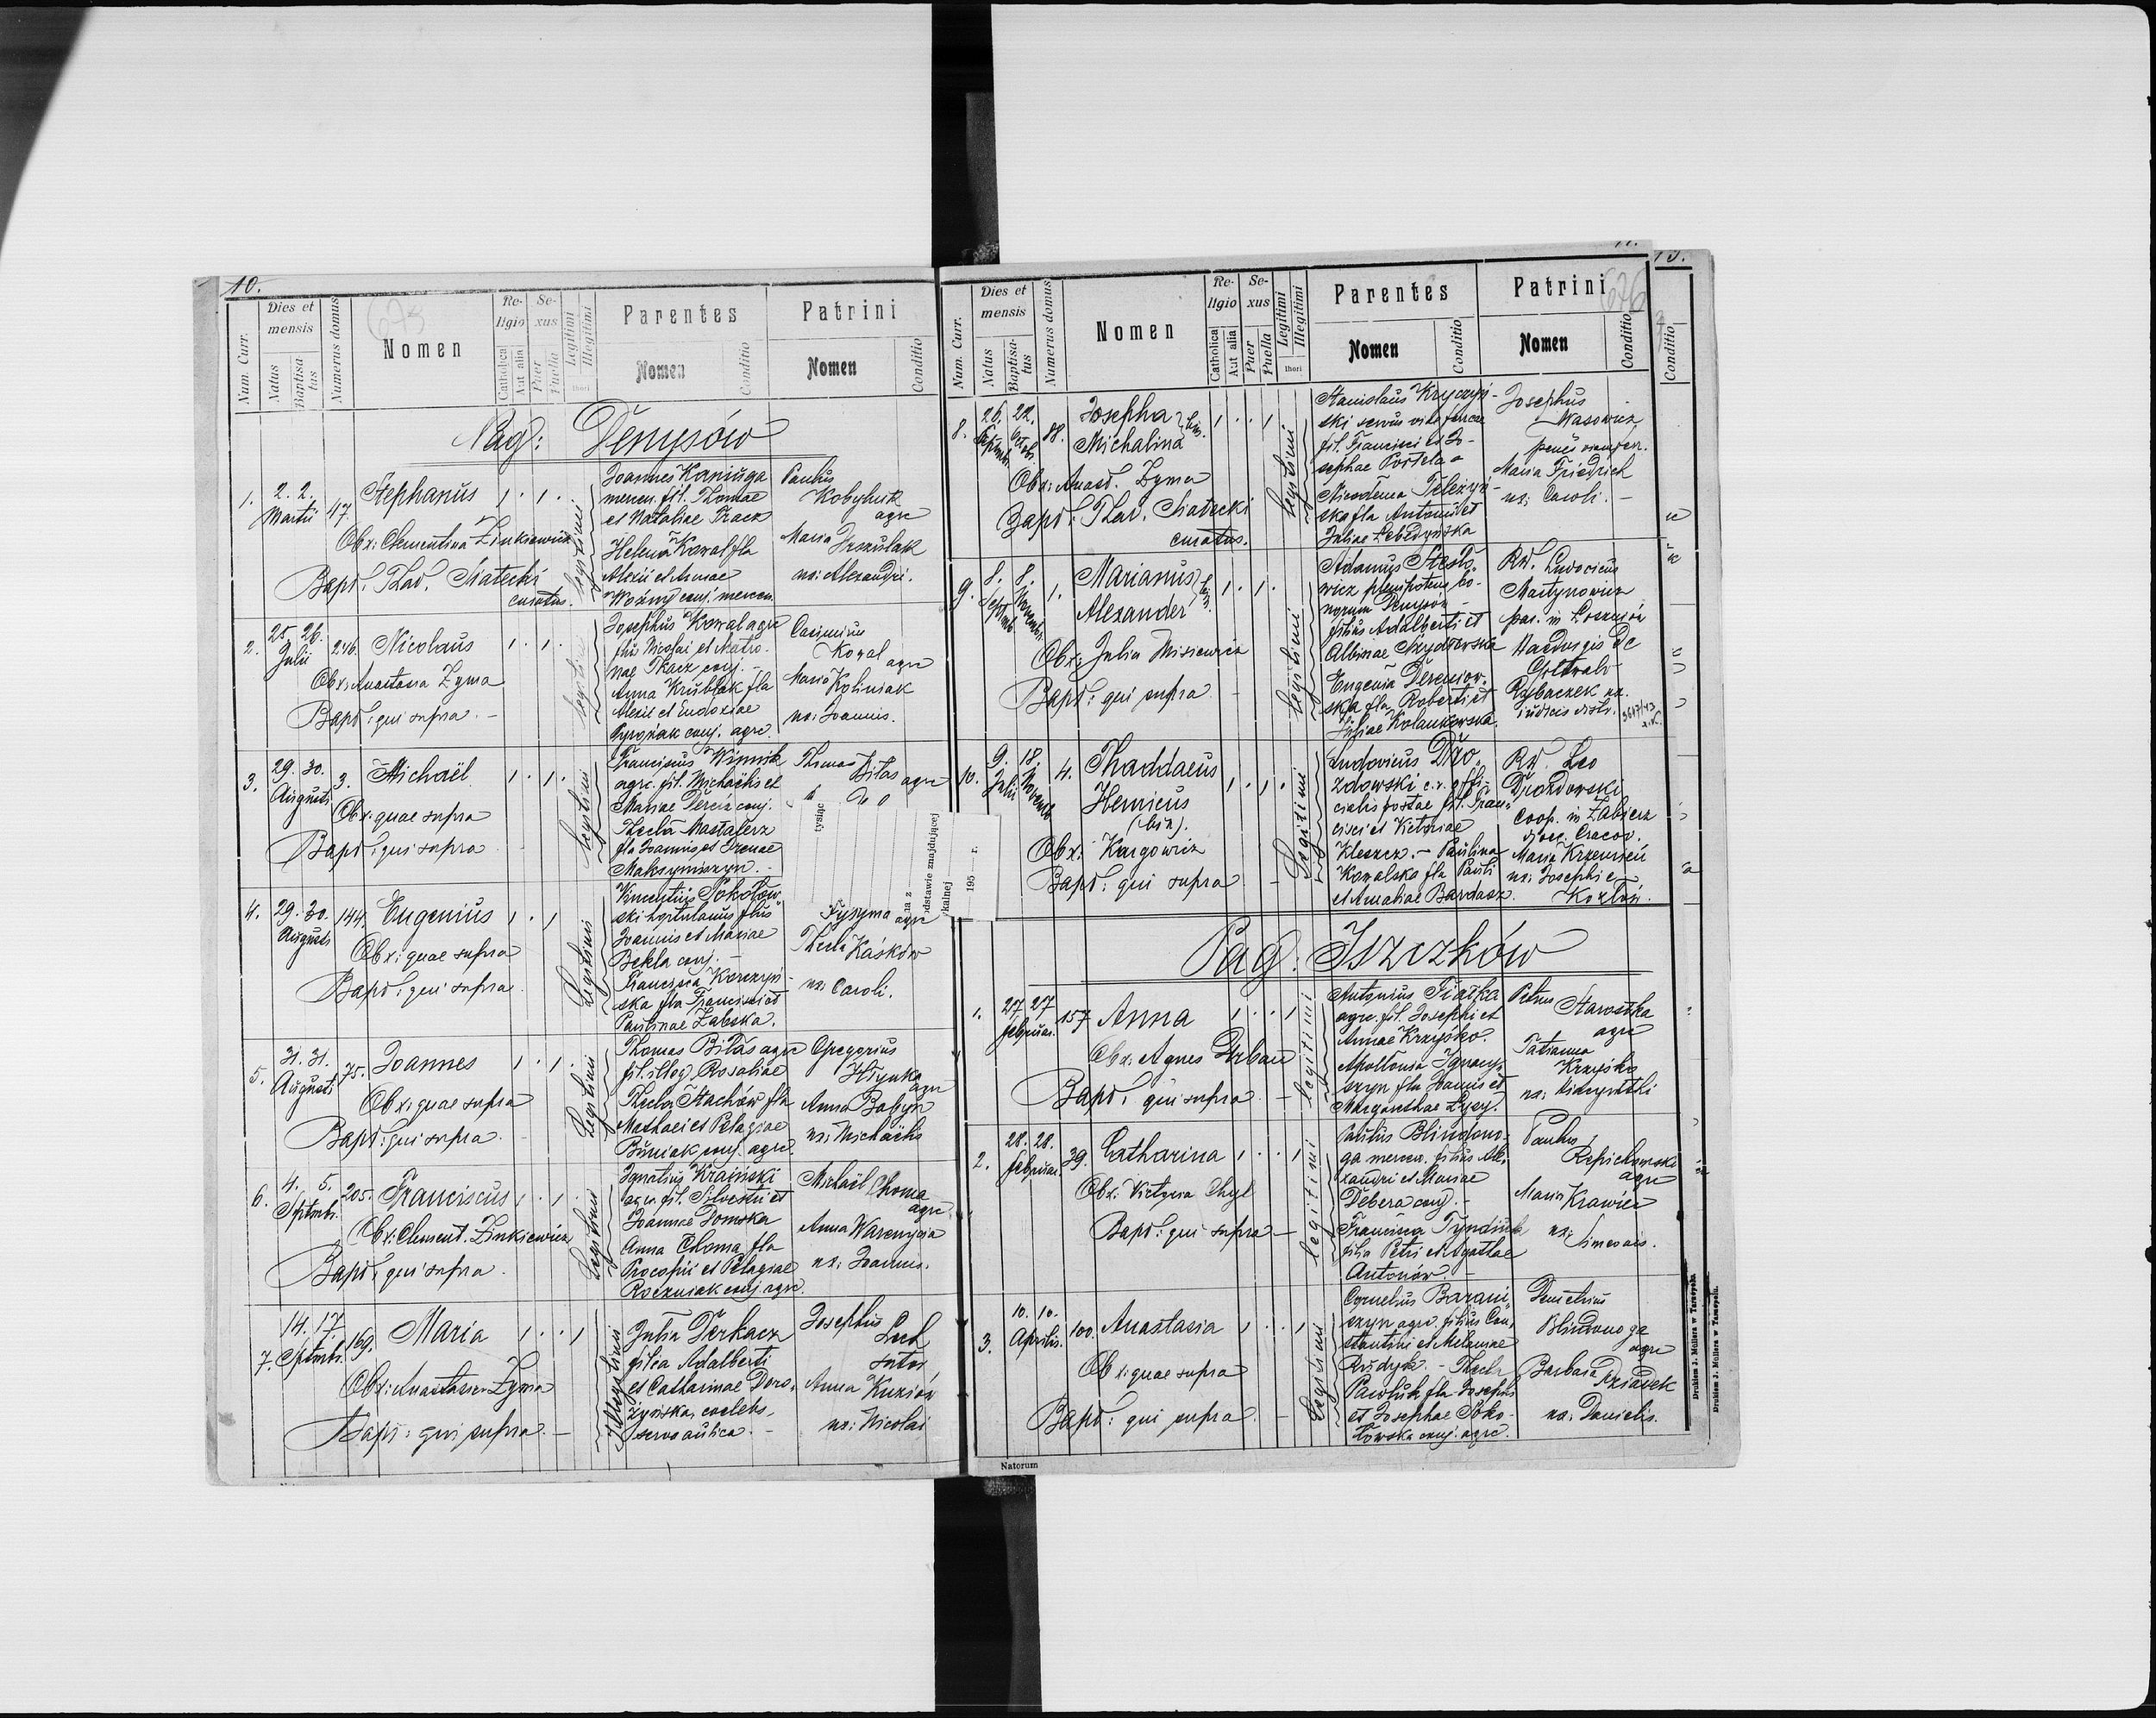 10.
Num. Curr.
Dies et mensis
Natus
Baptisatus
Numerus domus
Nomen
Religio
Catholica
Aut alia
Sexus
Puer
Puella
Legitimi
Illegitimi
thori
Parentes
Nomen
Conditio
Patrini
Nomen
Conditio
Pag: Denysów
1. 2. 2. Martii 47. Stephanus 1 · 1 ·
Obx: Clementina Zinkiewicz
Bapt. Thad. Matecki
curatus.
legitimi
Joannes Kaniuga
mercen. fil. Thomae
et Nataliae Tracz
Helena Kowal fla
Alexii et Annae
Woźny conj. mercen.
Paulus
Kobyluk
agrc
Maria Hrszulak
ux: Alexandri.
2. 25. 26. Julii 246. Nicolaus 1 · 1 ·
Obx: Anastasia Zyma
Bapt: qui supra. -
legitimi
Josephus Kowal agrc
flius Nicolai et Matro-
nae Tkacz conj. -
Anna Krublak fla
Alexii et Eudoxiae
conj. agrc.
Casimirus
Kowal agrc
Maria Koliniak
ux: Joannis.
3. 29. 30. Augusti 3. Michaël 1 · 1 ·
Obx: quae supra
Bapt: qui supra
legitimi
Franciscus Winnik
agrc. fil. Michaëlis et
Mariae Derciz conj.
Thecla Mastalerz
fla Joannis et Irenae
Maksymiszyn. -
Thomas
Bilas agrc
tysiąc
na z
odstawie znajdującej
kalnej
195 r.
4. 29. 30. Augusti 144. Eugenius 1 · 1
Obx: quae supra
Bapt: qui supra.
Legitimi
Sokołow-
ski hortulanus flius
Joannis et Mariae
Bekla conj. -
Francisca Korczyń-
ska fla Francisci et
Paulinae Zabska.
Tysyma agrc
Thecla Kaśków
ux: Caroli.
5. 31. 31. Augusti 75. Joannes 1 · 1 ·
Obx: quae supra
Bapt: qui supra.
Legitimi
Thomas Bilas agrc
fil. illeg. Rosaliae
Thecla Stachów fla
Mathaei et Pelagiae
Buniak conj. agrc.
Gregorius
Hlynka
agrc
Anna Babyn
ux: Michaëlis
6. 4. 5. Septmbr. 205. Franciscus 1 · 1 ·
Obx: Clement. Zinkiewicz
Bapt: qui supra.
Legitimi
Ignatius Kraiński
agrc. fil. Silvestri et
Joannae Domska
Anna Choma fla
Procopii et Pelagiae
Roczniak conj. agrc.
Michaël Choma
agrc
Anna Warenycia
ux: Joannis.
7. 14. 17 Septmbr. 169. Maria 1 · · 1
Obx: Anastasia Zyma
Bapt: qui supra. -
Illegitimi
Julia Derkacz
filia Adalberti
et Catharinae Doro-
żyńska, coelebs,
serva aulica. -
Josephus
Lech
sutor
Anna Kuziów
ux: Nicolai
11.
676
Num. Curr.
Dies et mensis
Natus
Baptisatus
Numerus domus
Nomen
Religio
Catholica
Aut alia
Sexus
Puer
Puella
Legitimi
Illegitimi
thori
Parentes
Nomen
Conditio
Patrini
Nomen
Conditio
Conditio
8. 26. Septmbr. 22. Octob. 88. Josepha
Michalina bin. 1 · · 1
Obx: Anast. Zyma
Bapt: Thad. Matecki
curatus.
legitimi
Stanislaus Kryczyń-
ski servus viae ferreae
fil. Francisci et Jo-
sephae Portela -
Nicodema Teleżyń-
ska fla Antonii et
Juliae Lebedyńska
Josephus
Wasowicz
penes viam fer.
Maria Friedrich
ux: Caroli. -
9. 8. Septmb. 8. Novembr. 1. Marianus
Alexander bin. 1 · 1 ·
Obx: Julia Misiewicz
Bapt: qui supra. -
legitimi
Adamus Stesło-
wicz plenipotens bo-
norum Denysów -
filius Adalberti et
Albinae Szydłowska
Eugenia Derenior-
ska fla Roberti et
Juliae Kolankowska.
Rd. Ludovicus
Martynowicz
par. in
Hadvigis de
Gottwald
Rybaczek ux.
iudicis distr.
3617/43
10. 9. Julii 18. Novemb. 4. Thaddaeus
Henricus
(bin). 1 · 1 ·
Obx: Kargowicz
Bapt: qui supra -
Legitimi
Ludovicus Dro-
zdowski c.r. offi-
cialis postae fil. Fran-
cisci et Victoriae
Kleszcz. - Paulina
Kowalska fla Pauli
et Amaliae Bardasz.
Rd. Leo
Drozdowski
coop. in Zabierz
dioec. Cracov.
Maria Krzewicii
ux: Josephi e
Kozłów.
Pag: Iszczków
1. 27 27 februar. 157 Anna 1 · · 1
Obx. Agnes Urban
Bapt. qui supra -
legitimi
Antonius Fiałka
agrc. fil. Josephi et
Annae Krzyśko.
Apollonia Ignacy-
szyn fla Joannis et
Margarethae Łysy.
Petrus
Starostka
agrc
Tatianna
Krzyśko
ux:
2. 28. 28. februar. 39. Catharina 1 · · 1
Obx: Victoria Chyl
Bapt: qui supra -
legitimi
Paulus Blindono-
ga mercen. filius Ale-
xandri et Mariae
Debera conj. -
Francisca Tyndiuk
filia Petri et Agathae
Antonów. -
Paulus
Repichowski
agrc
Maria Krawiec
ux: Simeonis.
3. 10. 10. Aprilis. 100. Anastasia 1 · · 1
Obx: quae supra
Bapt: qui supra. -
Legitimi
Cornelius Barani-
szyn agrc. filius Con-
stantini et Melaniae
Thecla
Pawluk fla Josephi
et Josephae Soko-
łowska conj. agrc.
Demetrius
Blindonoga
agrc
Barbara Dziadek
ux: Danielis.
Natorum
Drukiem J. Müllera w Tarnopolu.
Drukiem J. Müllera w Tarnopolu.